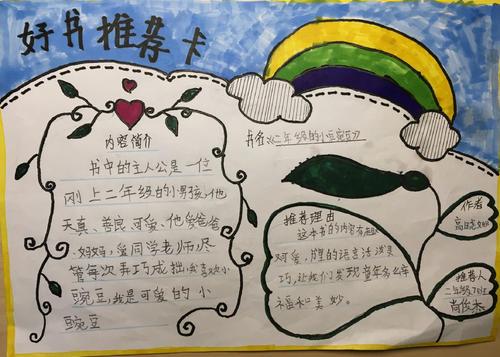 好书推荐卡
内容简介
书中的主人公是一位
刚上二年级的小男孩,他
天真、善良、可爱、他爱爸爸
、妈妈,爱同学老师,尽
管每次弄巧成拙,我喜欢小
豌豆,我是可爱的小
豌豆
书名《二年级的小豌豆》
推荐理由
这本书的内容有趣
可爱,牌的语言活泼灵
巧,让我们发现童年多么幸
福和美妙。
作者
推荐人
二年级